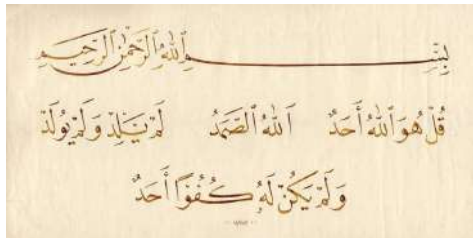 بِسْمِ اللّٰهِ الرَّحْمٰنِ الرَّحِيمِ
قُلْ هُوَ اللّٰهُ أَحَدٌ اَللّٰهُ الصَّمَدُ لَمْ يَلِدْ وَلَمْ يُولَدْ
وَلَمْ يَكُنْ لَهُ كُفُوًا أَحَدٌ